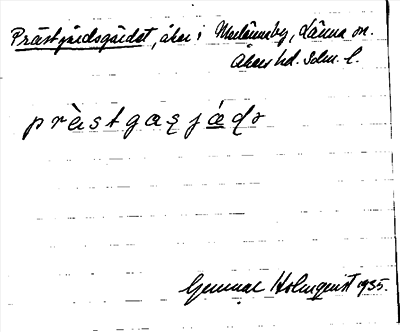 Prästgårdsgärdet, åker i Mälännby, Länna sn.
Åkers hd. Sdm. l.
prästgasjædə
Gunnar Holmquist 1935.